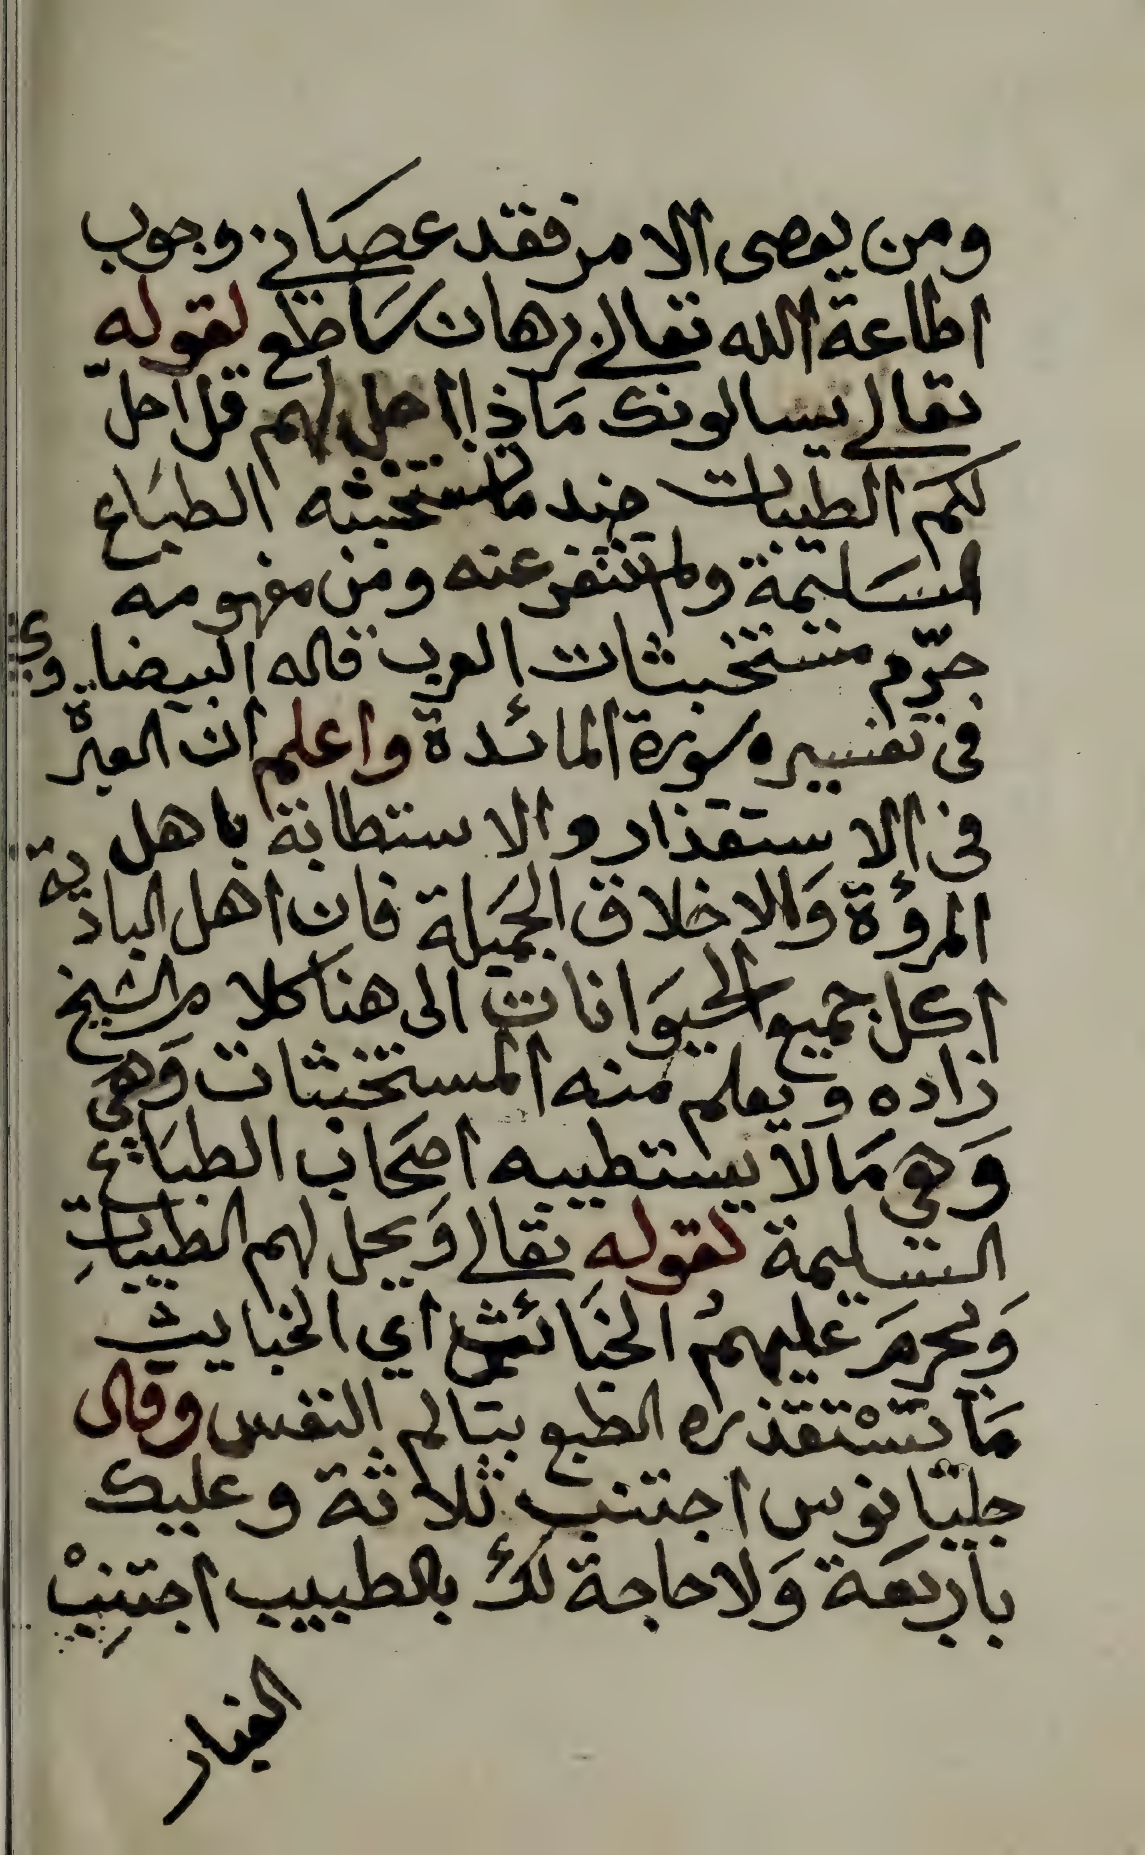 ومن يعصى الامر فقد عصاني وجوب
اطاعة الله تعالى برهان ساطع لقوله
تعالى يسالونك مَاذا احل لهم قل احلّ
لكم الطيبات ضد ما تستخبثه الطبَاع
لمسَليمة ولم تتنفر عنه ومن مفهومه
حرّم مستخبثات العرب قاله البيضاوي
في تفسيره سورة المائدة واعلم ان العبرة
في الاستقذار والاستطابة باهل
المرؤة وَالاخلاق الجمَيلة فان اهل البادية
اكل جميع الحيوَانات الى هنا كلام الشيخ
زاده ويعلم منه المستخبثات وَهي
وَهي مَالا يستطيبه اصحَاب الطبَاع
السليمة لقوله تعالى وَيحل لهم الطيباتِ
وَيحرمَ عليهمُ الخبَائث اي الخبايث
مَا تسْتقذره الطبع بتالم النفس وقال
جليانوس اجتنب ثلاثة وعليك
باربعَة وَلاحاجة لك بالطبيب اجتنِبْ
الغبار